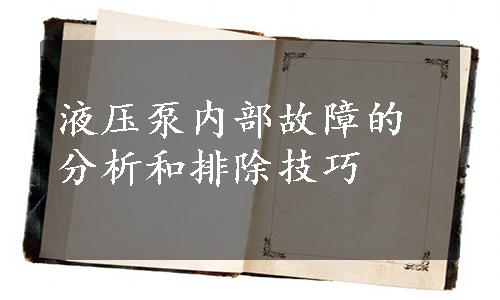 液压泵内部故障的
分析和排除技巧